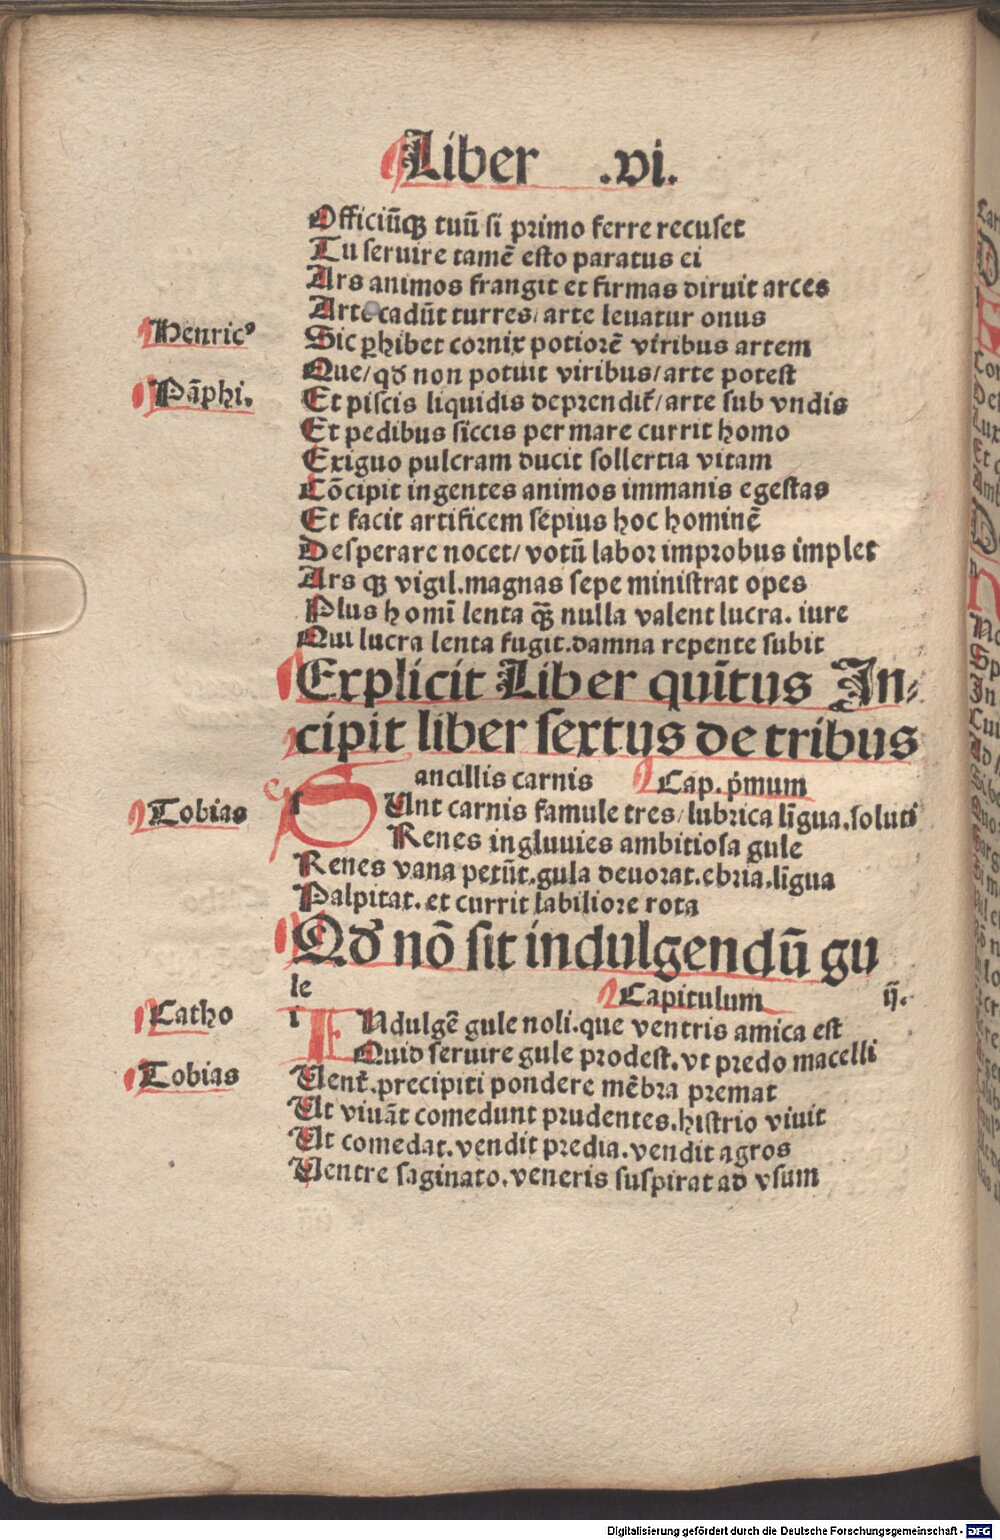 Liber .vi.
Officiūqꝫ tuū si primo ferre recuset
Tu seruire tamē esto paratus ei
Ars animos frangit et firmas diruit arces
Arte cadūt turres/ arte leuatur onus
Henricꝰ
Sic ꝑhibet cornix potiorē viribus artem
Que/ qđ non potuit viribus/ arte potest
Pāphi.
Et piscis liquidis deprendit᷑/ arte sub vndis
Et pedibus siccis per mare currit homo
Exiguo pulcram ducit sollertia vitam
Cōcipit ingentes animos immanis egestas
Et facit artificem sepius hoc hominē
Desperare nocet/ votū labor improbus implet
Ars qꝫ vigil. magnas sepe ministrat opes
Plus homī lenta qꝫ̄ nulla valent lucra. iure
Qui lucra lenta fugit. damna repente subit
Explicit Liber quītus In⸗
cipit liber sextus de tribus
ancillis carnis Cap. pͥmum
Tobias
s SUnt carnis famule tres/ lubrica līgua. soluti
Renes ingluuies ambitiosa gule
Renes vana petūt. gula deuorat. ebria. līgua
Palpitat. et currit labiliore rota
Qđ nō sit indulgendū gu
le Capitulum ij.
Catho
i INdulgē gule noli. que ventris amica est
Quid seruire gule prodest. vt predo macelli
Tobias
Uent᷑. precipiti pondere mēbra premat
Ut viuāt comedunt prudentes. histrio viuit
Ut comedat. vendit predia. vendit agros
Uentre saginato. veneris suspirat ad vsum
Digitalisierung gefördert durch die Deutsche Forschungsgemeinschaft - DFG